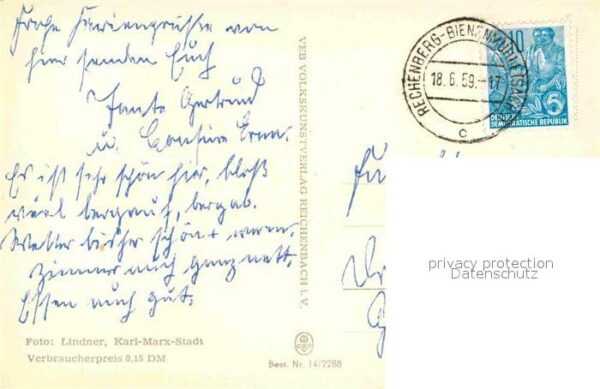 Frohe Feriengrüße von
hier senden Euch
Tante Gertrud
u. Cousine Erna.
Es ist sehr schön hier, bloß
viel bergauf, bergab.
Wetter bisher schön + warm.
Zimmer auch ganz nett.
Essen auch gut.
Foto: Lindner, Karl-Marx-Stadt
Verbraucherpreis 0,15 DM
VEB VOLKSKUNSTVERLAG REICHENBACH i. V.
Best. Nr. 14/2288
RECHENBERG-BIENENMÜHLE
18.6.59.-17
c
10
DEUTSCHE
DEMOKRATISCHE REPUBLIK
privacy protection
Datenschutz